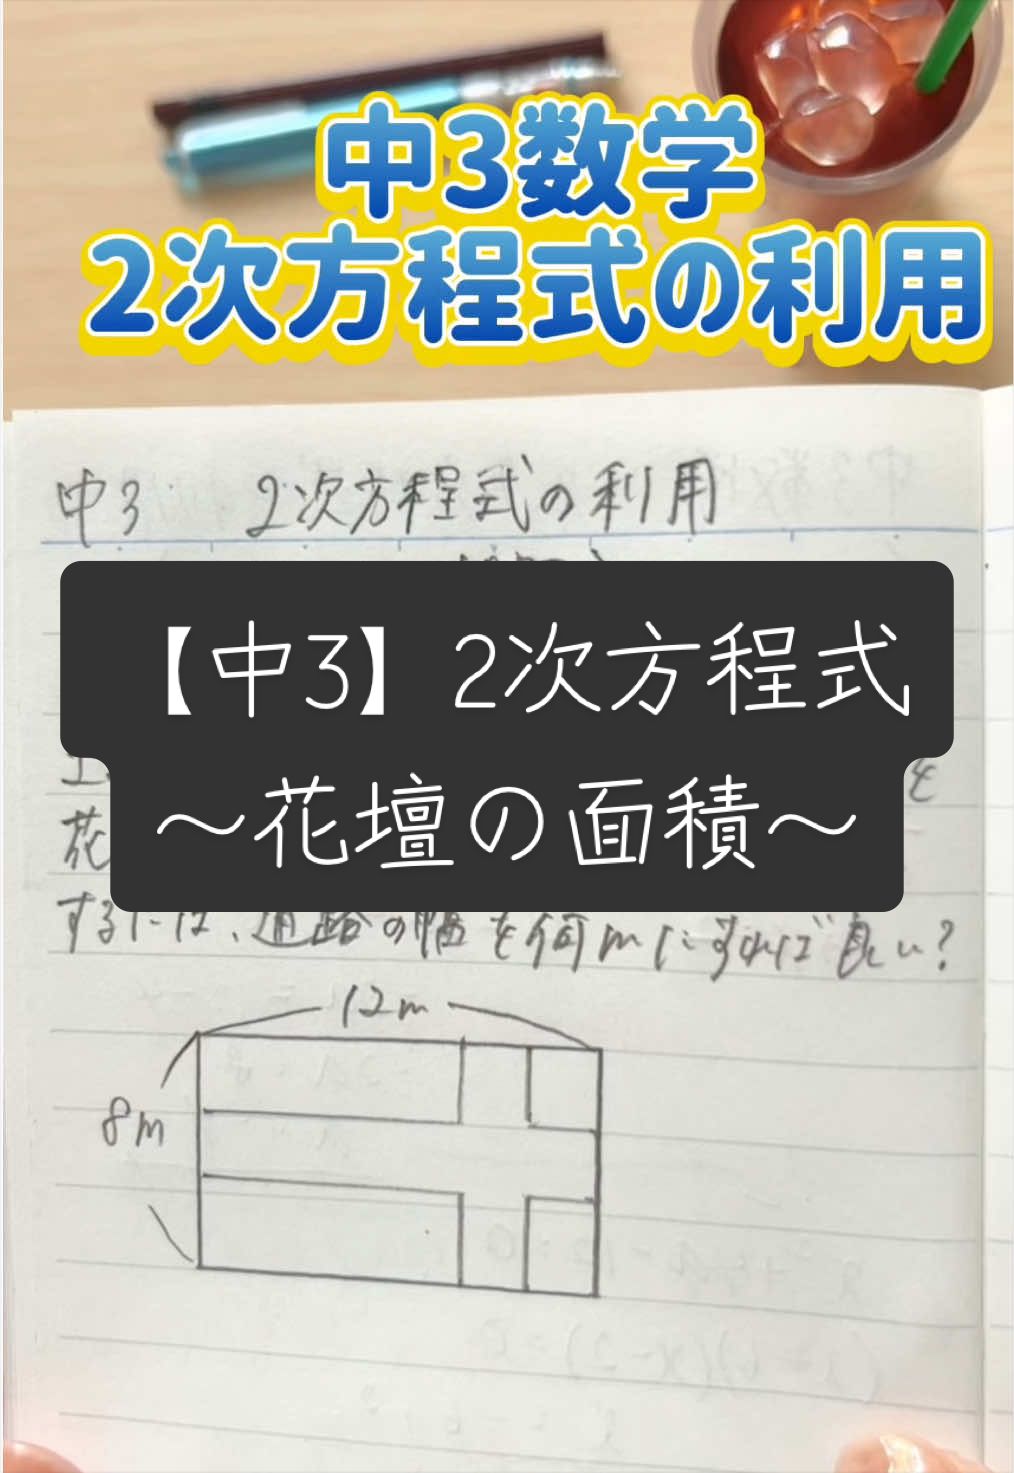 中3数学
2次方程式の利用
中3 2次方程式の利用
【中3】2次方程式
～花壇の面積～
を
花
するには、通路の幅を何mにすれば良い?
12m
8m